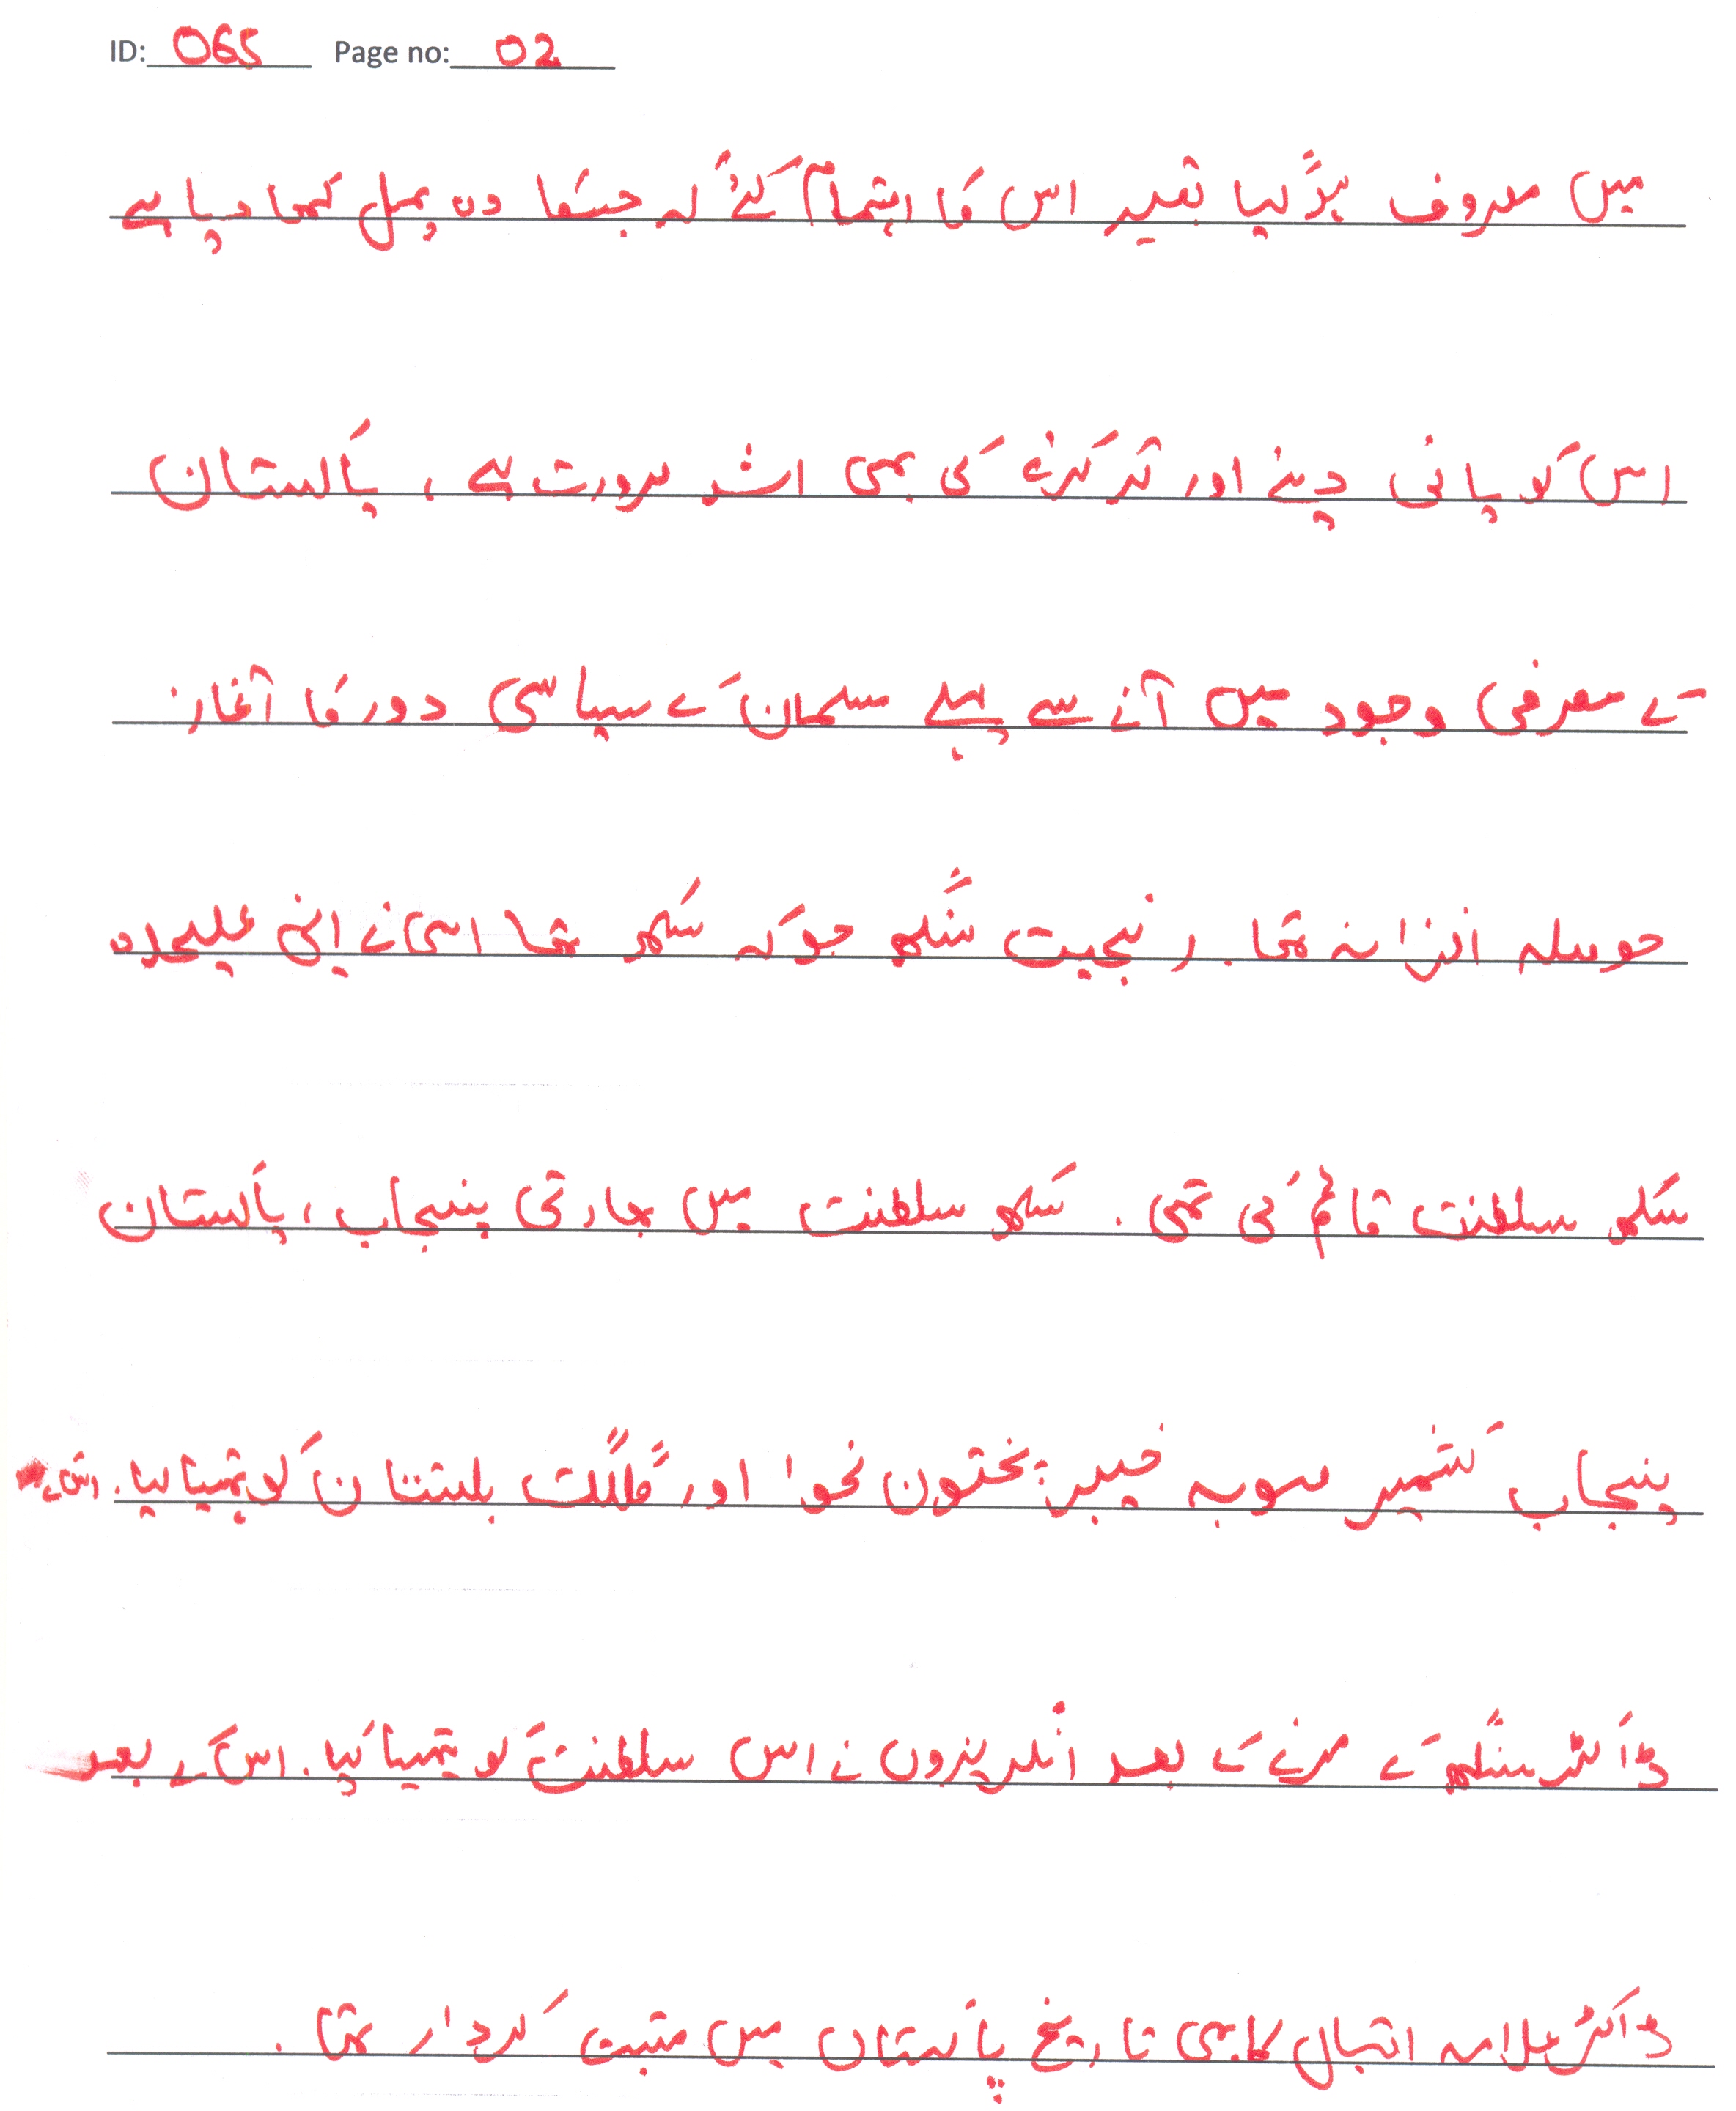 ID: 065 Page no: 02
میں معروف ہوگیا بغیر اس کا اہتمام کئے کہ جسکا دن پھل کھا رہا ہے
اس کو پانی دینے اور تر کرنے کی بھی اشد ضرورت ہے ، پاکستان
کے معرض وجود میں آنے سے پہلے مسلمان کے سیاسی دور کا آغاز
حوصلہ افزا نہ تھا. رنجیت سنگھ جو کہ سکھ تھا اسی نے اپنی علیحدہ
سکھ سلطنت قائم کی تھی . سکھ سلطنت میں بھارتی پنجاب ، پاکستان
پنجاب کشمیر صوبہ خیبر پختون خوا اور گلگت بلتستان کو ہتھیا لیا . اس کے
ڈاکٹر سنگھ کے مرنے کے بعد انگریزوں نے اس سلطنت کو ہتھیا لیا . اس کے بعد
ڈاکٹر علامہ اقبال کا بھی تاریخ پاکستان میں مثبت کردار تھا .